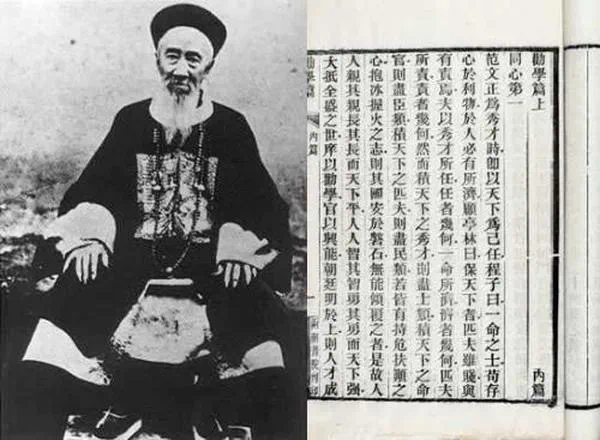 勸學篇上 内篇
同心第一
范文正爲秀才時卽以天下爲己任程子曰一命之士苟存
心於利物於人必有所濟顧亭林曰保天下者匹夫雖賤與
有責焉夫以秀才所任任者幾何一命所濟濟者幾何匹夫
所責責者幾何然而積天下之秀才則盡士類積天下之命
官則盡臣類積天下之匹夫則盡民類若皆有持危扶顚之
心抱冰握火之志則其國安於磐石無能傾覆之者是故人
人親其親長其長而天下平人人智其智勇其勇而天下强
大抵全盛之世庠以勸學官以興能朝廷明於上則人才成
勸學篇 内篇